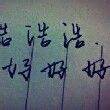 浩浩浩.
好好好